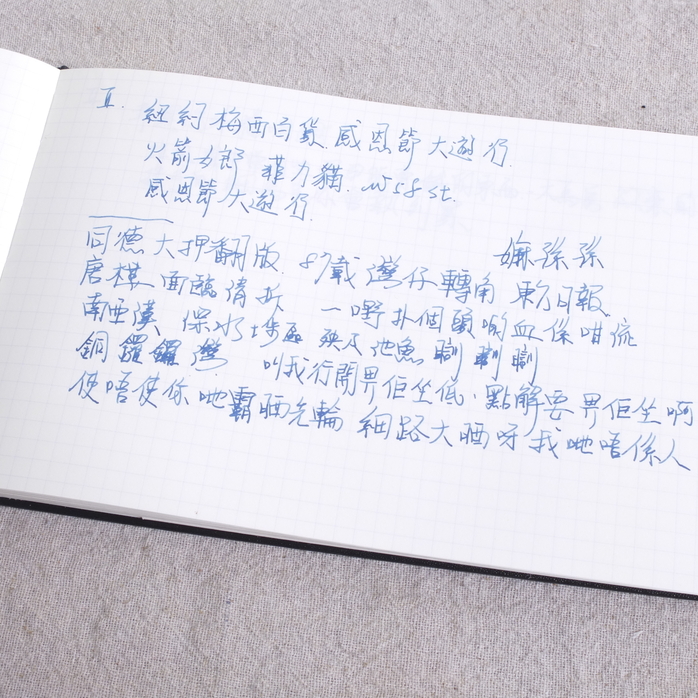 II. 紐約梅西百貨感恩節大遊行.
火箭女郎 菲力貓. W58st.
感恩節大遊行.
同德大押翻版. 87載灣仔轉角 嫲孫孫
唐樓面臨清拆 一嘢扑個頭啲血係咁流 東方日報
南亞漢 保水場區 殃及池魚
銅鑼灣 叫我行開畀佢坐低. 點解要畀佢坐啊
使唔使你哋霸晒先輪 細路大晒呀我哋唔係人